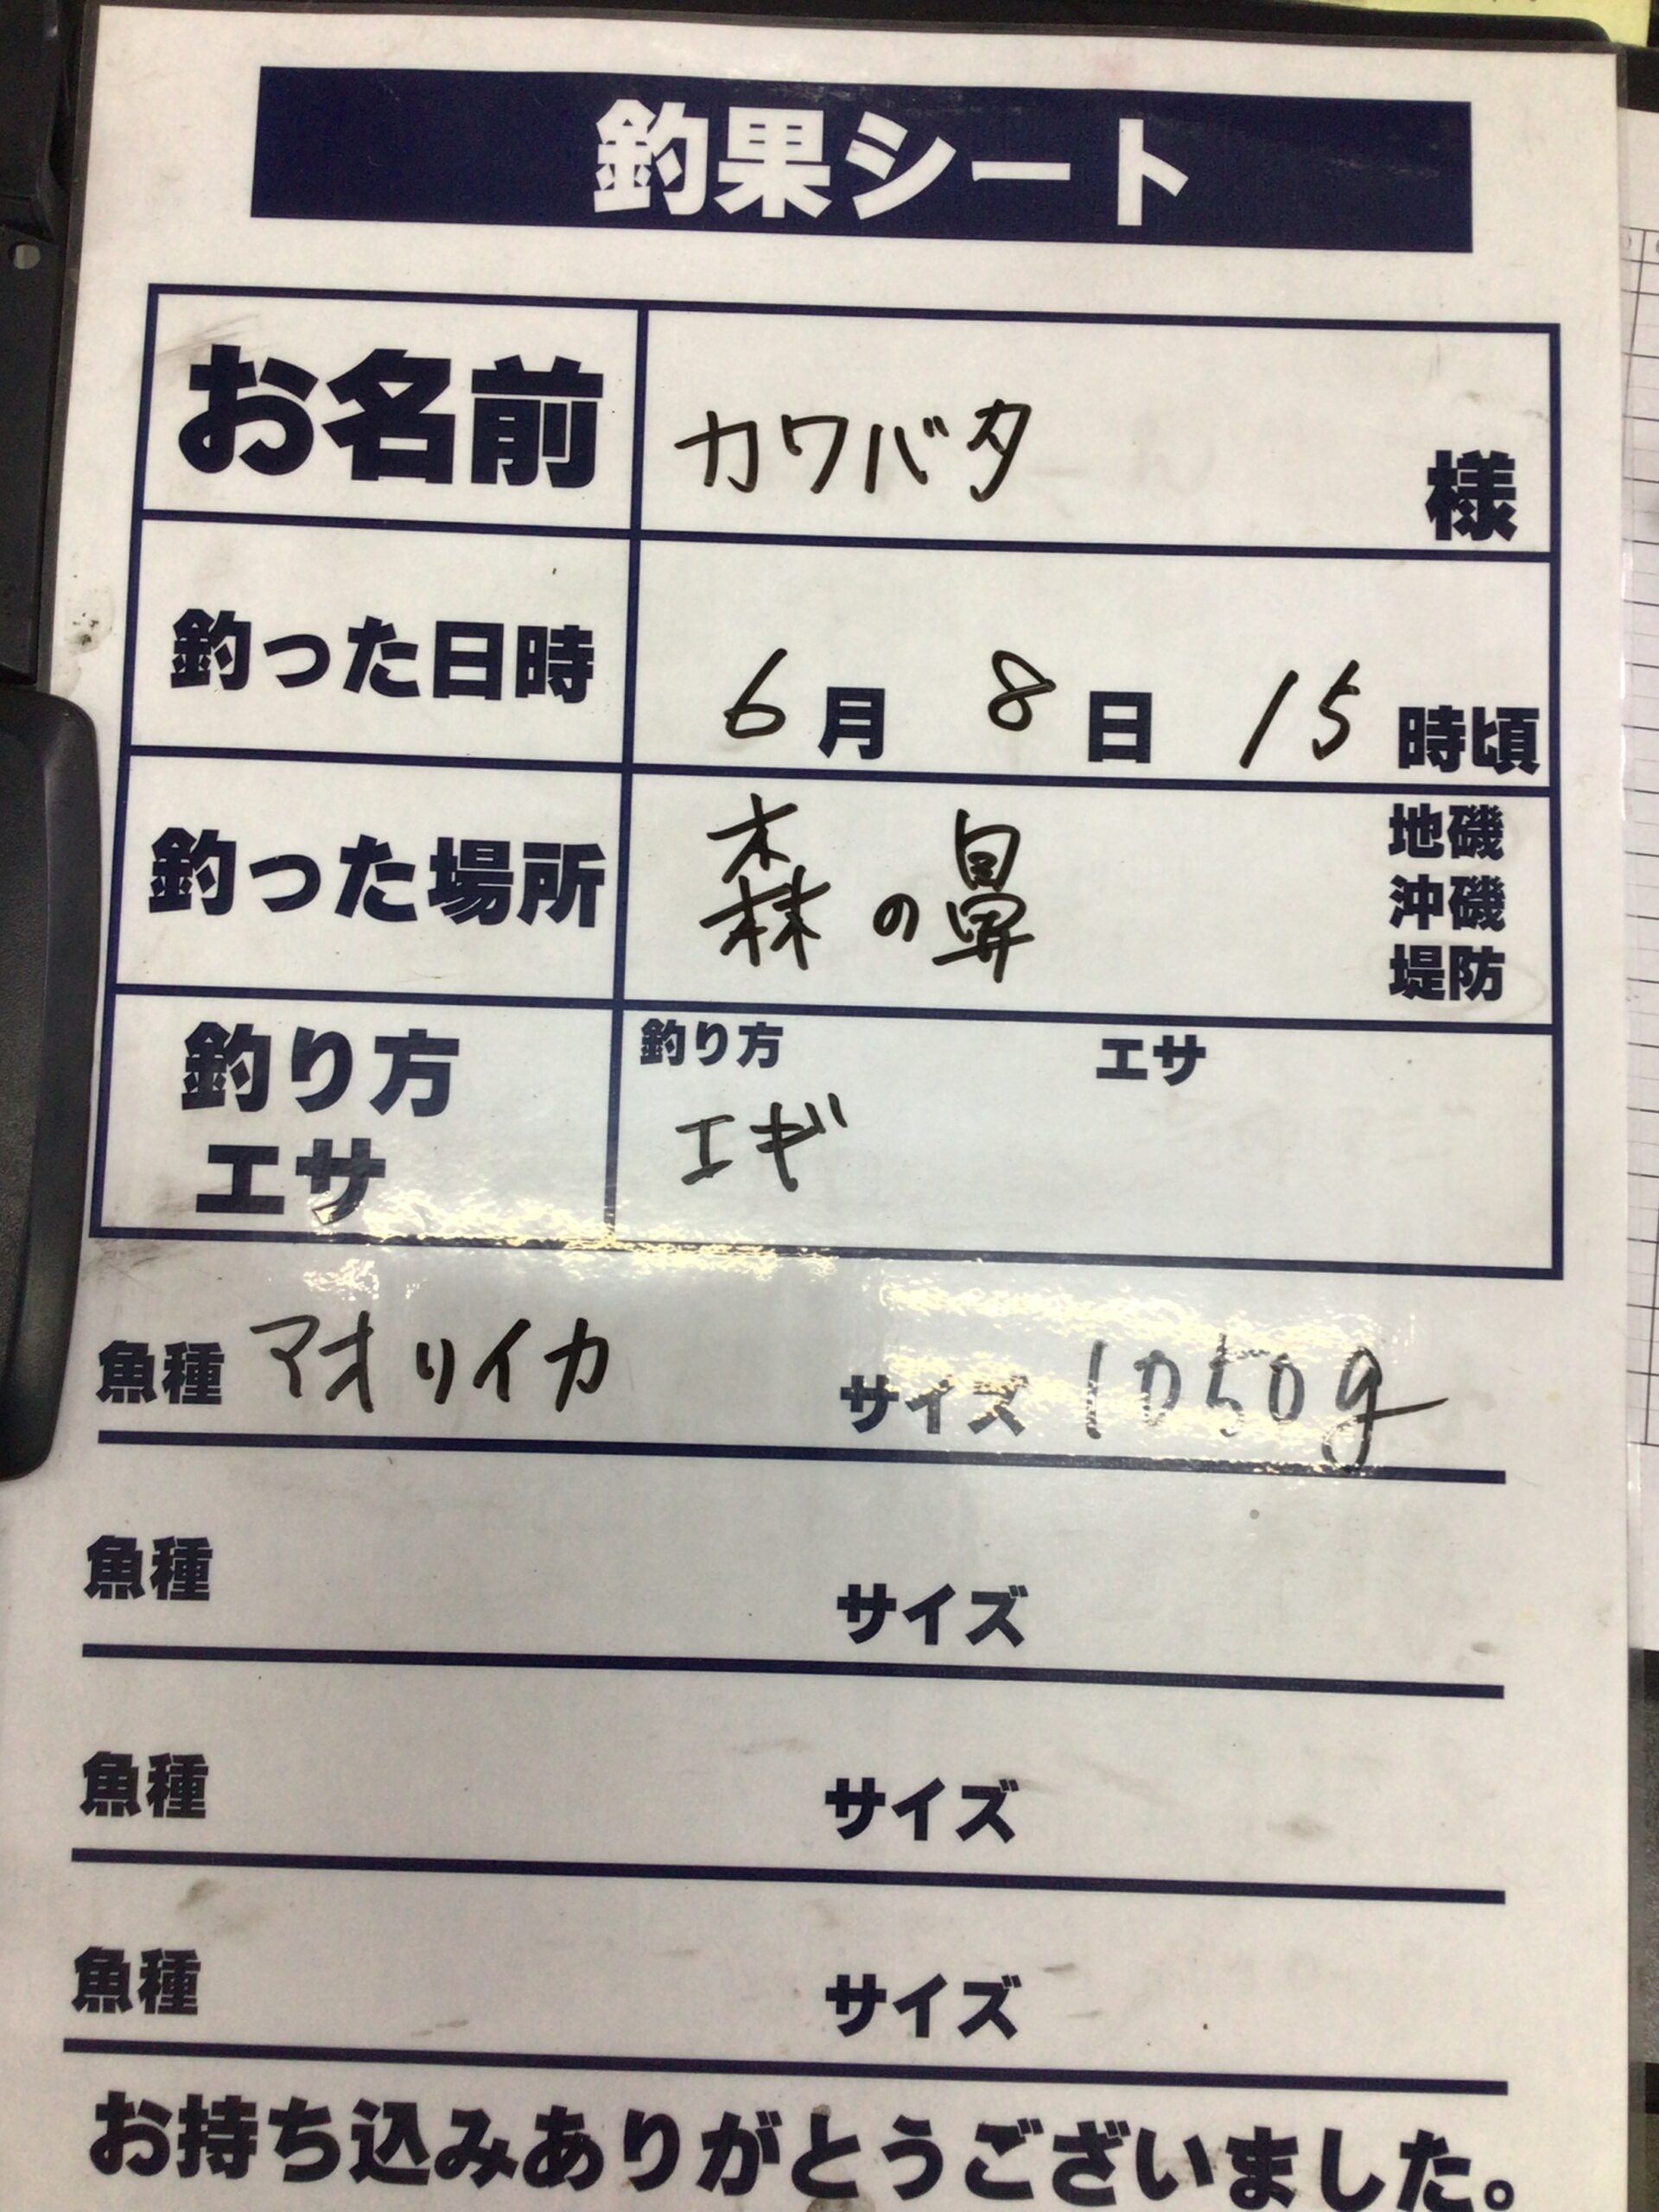 釣果シート
お名前 カワバタ 様
釣った日時 6月 8日 15時頃
釣った場所 森の鼻 地磯
沖磯
堤防
釣り方
エサ
釣り方 エサ
エギ
魚種 アオリイカ サイズ 1050g
魚種 サイズ
魚種 サイズ
魚種 サイズ
お持ち込みありがとうございました。